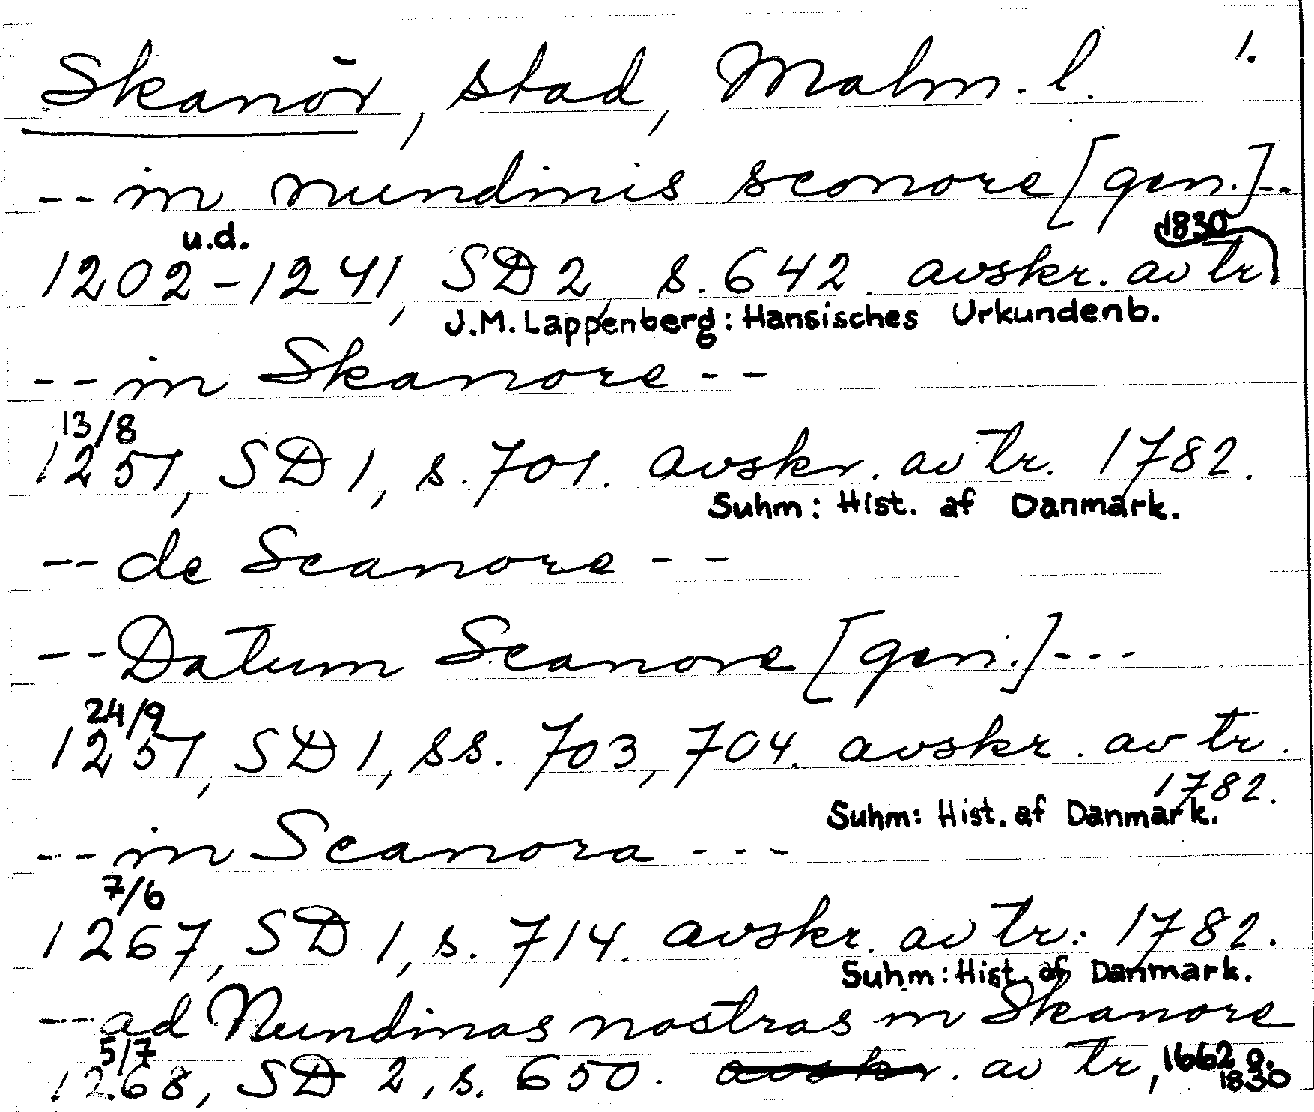 Skanör, stad, Malm. l. 1.
-- in nundinis sconore [gen.] --
u.d. 1830
1202-1241, SD 2, s. 642. avskr. av tr.
J.M. Lappenberg: Hansisches Urkundenb.
-- in Skanore --
13/8
1251, SD 1, s. 701. avskr. av tr. 1782.
Suhm: Hist. af Danmark.
-- de Scanore --
-- Datum Scanore [gen.] ---
24/9
1251, SD 1, ss. 703, 704. avskr. av tr.
1782.
Suhm: Hist. af Danmark.
-- in Scanora ---
7/6
1267, SD 1, s. 714. avskr. av tr. 1782.
Suhm: Hist. af Danmark.
-- ad Nundinas nostras in Skanore
5/7
1268, SD 2, s. 650. avskr. av tr, 1662 o.
1830